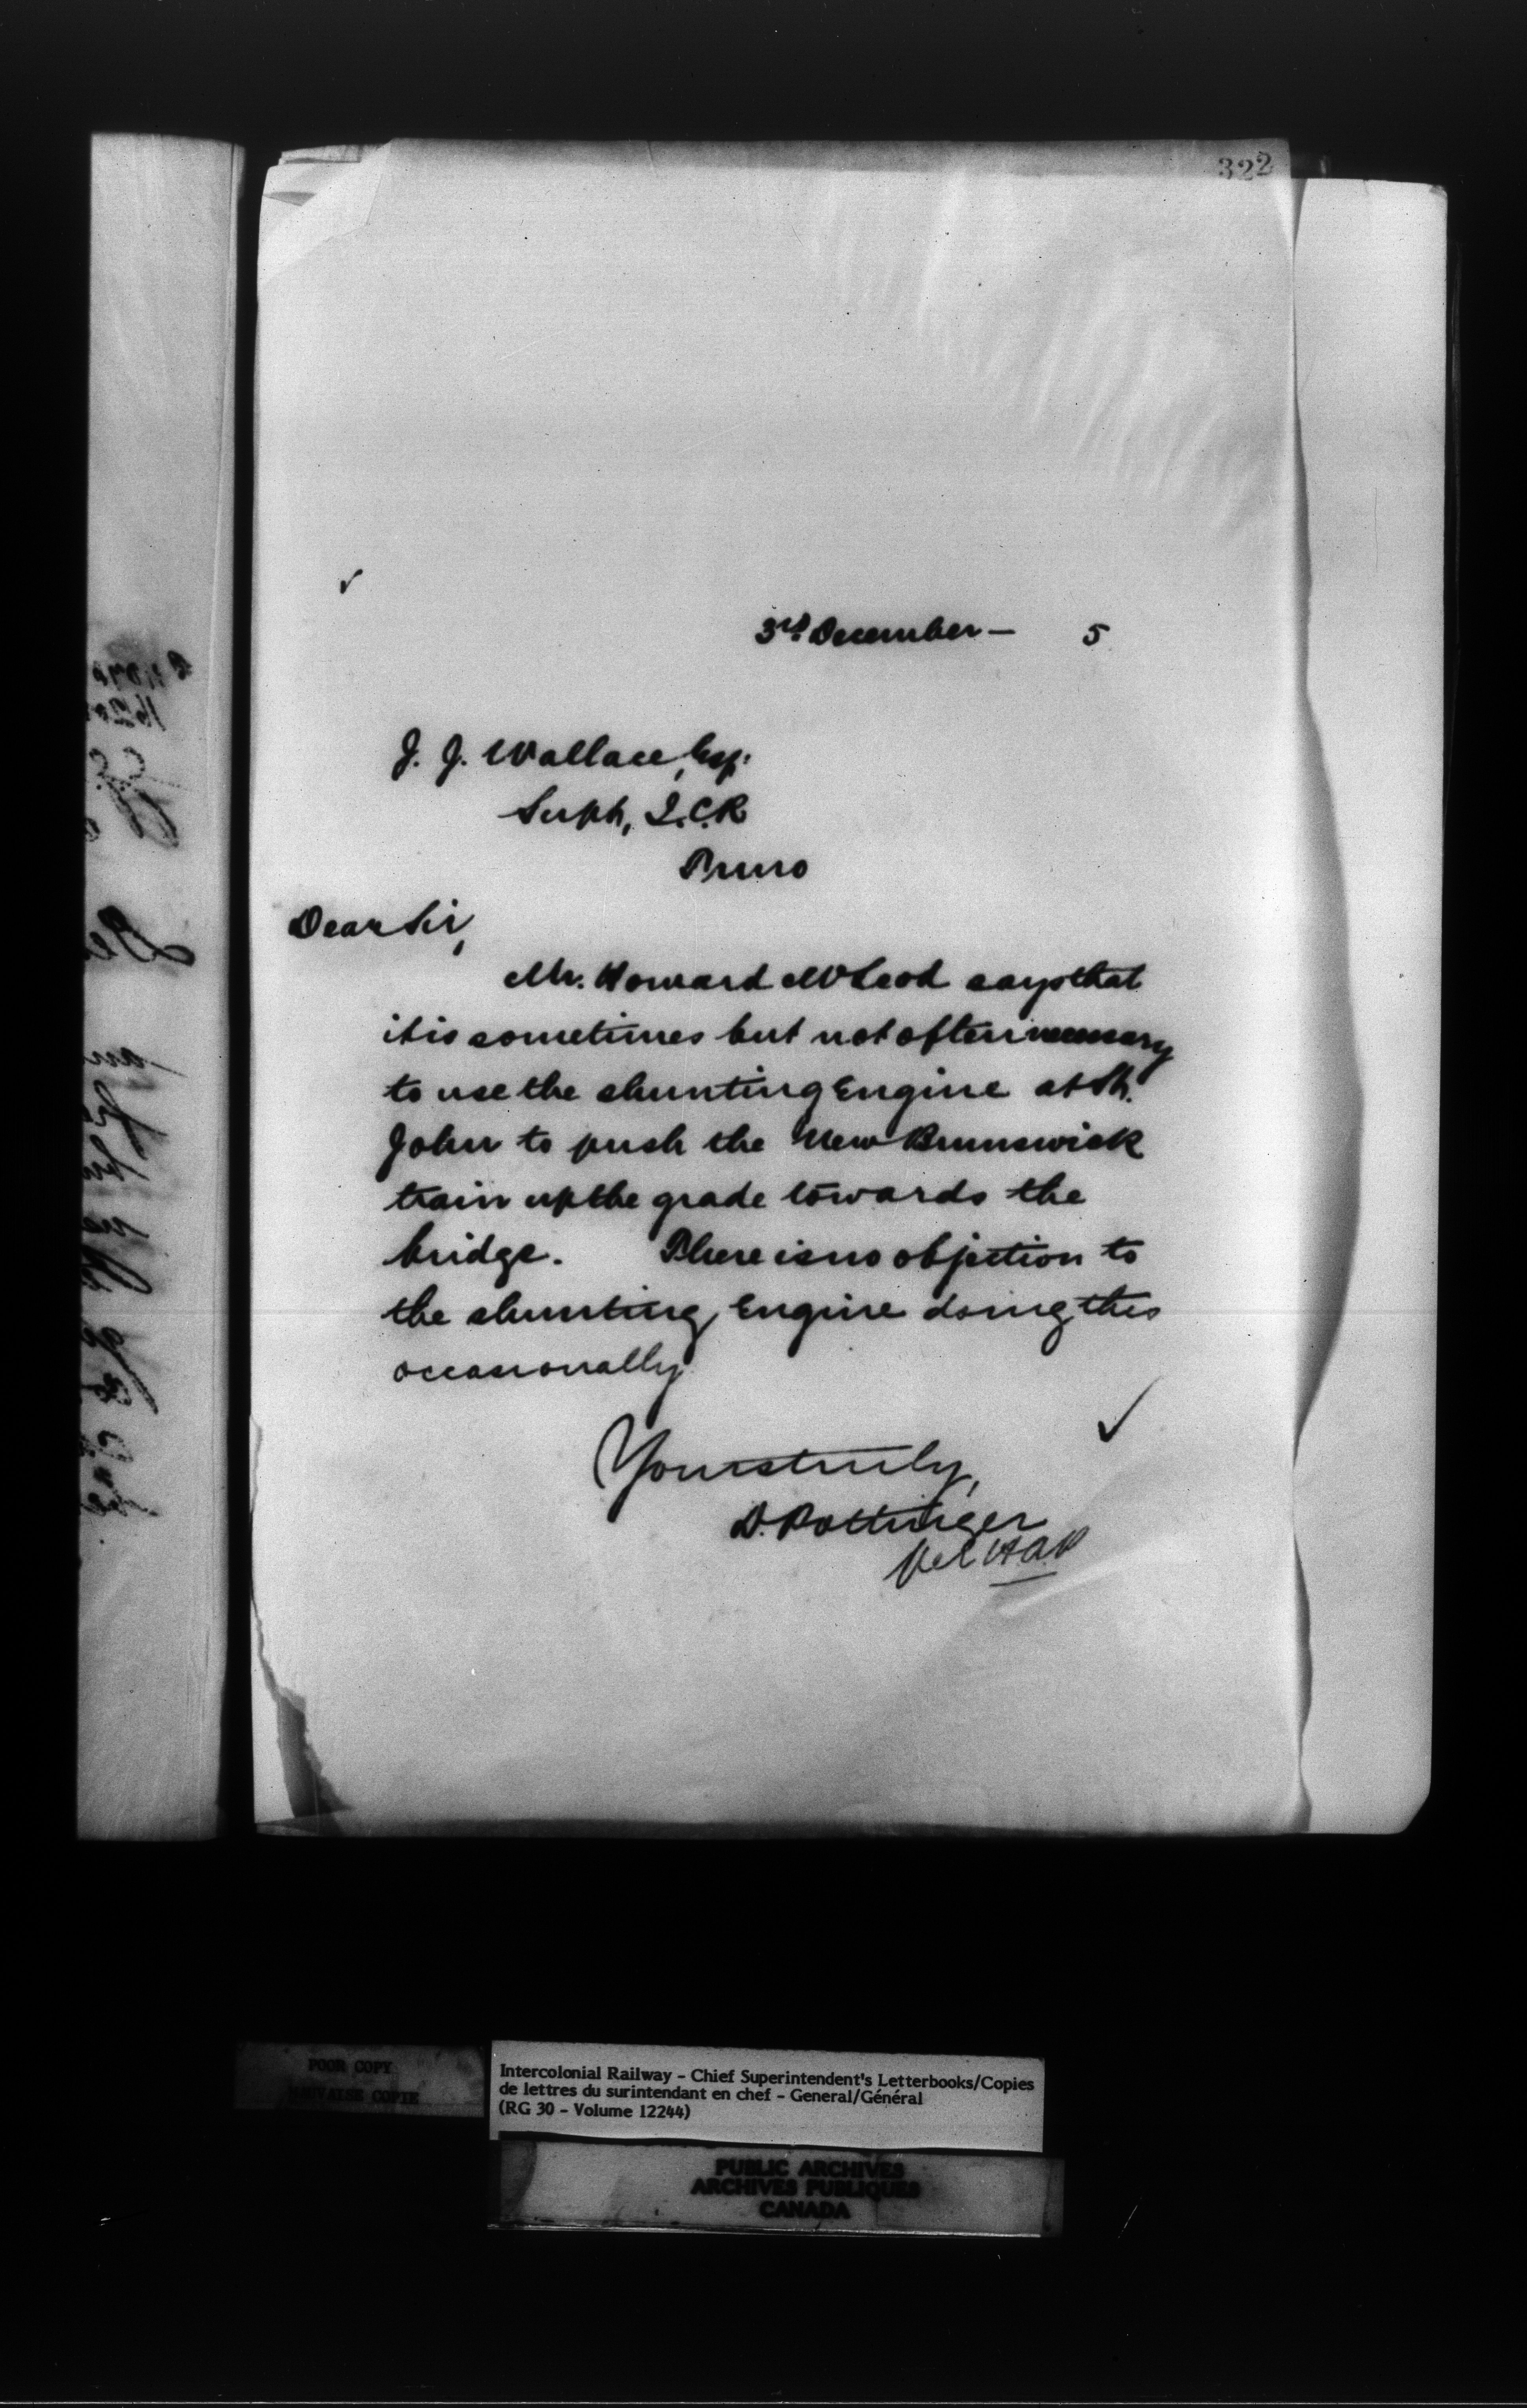 322
3rd December — 5
J. J. Wallace, Esq.
Supt, I.C.R
Truro
Dear Sir,
Mr. Howard McLeod says that
it is sometimes but not often necessary
to use the shunting Engine at St.
John to push the New Brunswick
train up the grade towards the
bridge. There is no objection to
the shunting Engine doing this
occasionally
Yours truly,
D. Pottinger
per HAP
POOR COPY
MAUVAISE COPIE
Intercolonial Railway - Chief Superintendent's Letterbooks/Copies
de lettres du surintendant en chef - General/Général
(RG 30 - Volume 12244)
PUBLIC ARCHIVES
ARCHIVES PUBLIQUES
CANADA